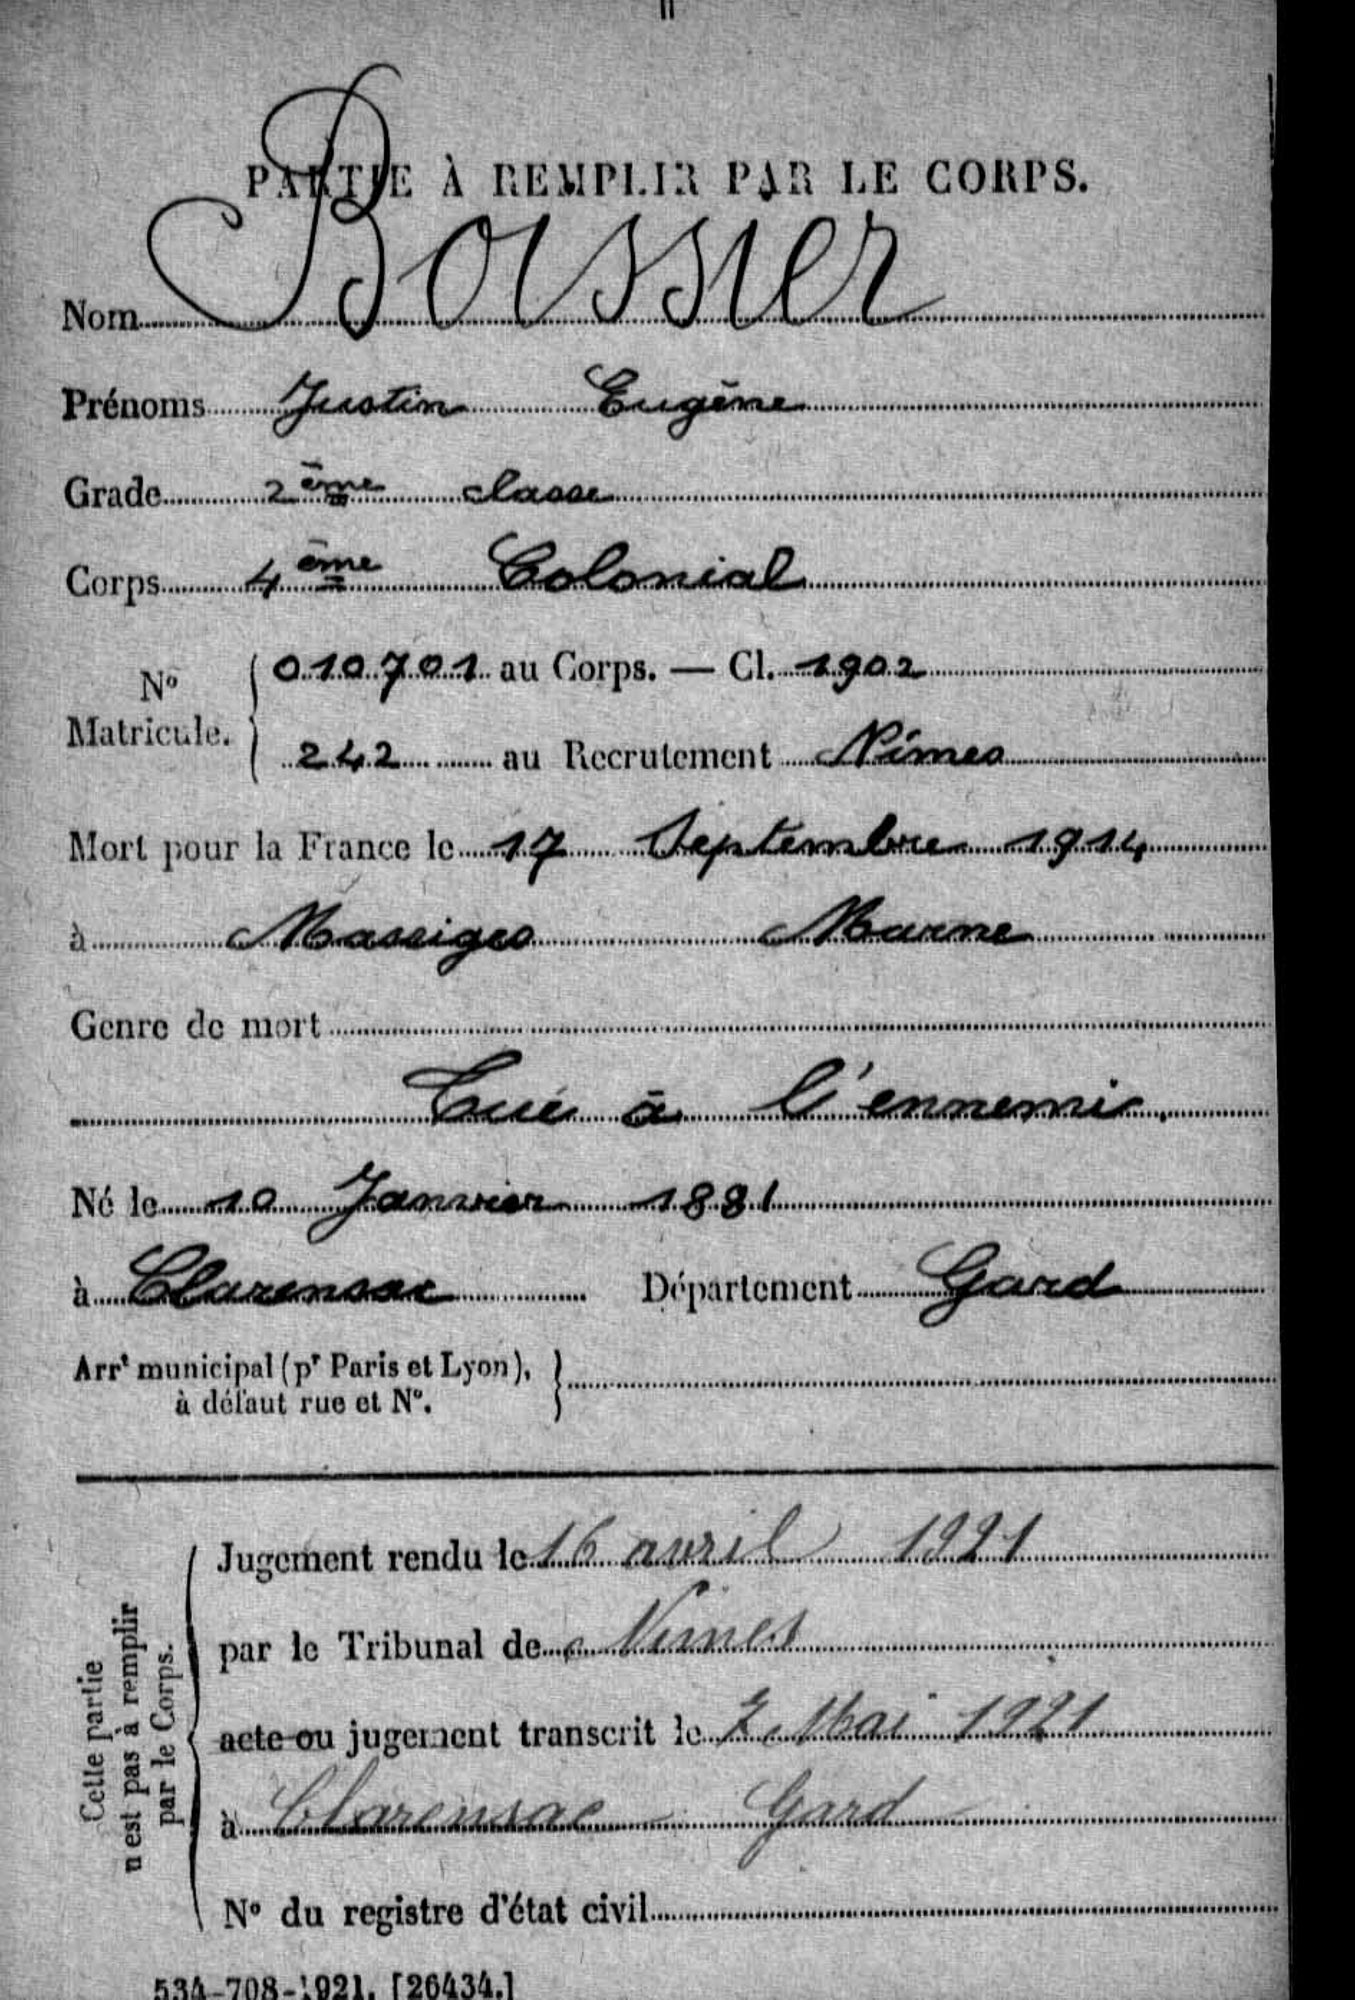 PARTIE À REMPLIR PAR LE CORPS.
Nom Boissier
Prénoms Justin Eugène
Grade 2ème classe
Corps 4ème Colonial
No Matricule. { 010701 au Corps. — Cl. 1902
242 au Recrutement Nîmes
Mort pour la France le 17 Septembre 1914
à Massiges Marne
Genre de mort
Tué à l'ennemi.
Né le 10 Janvier 1881
à Clarensac Département Gard
Arrt municipal (pr Paris et Lyon), }
à défaut rue et No.
Cette partie
n'est pas à remplir
par le Corps.
Jugement rendu le 16 avril 1921
par le Tribunal de Nimes
acte ou jugement transcrit le 7 Mai 1921
à Clarensac Gard
No du registre d'état civil
534-708-1921. [26434.]